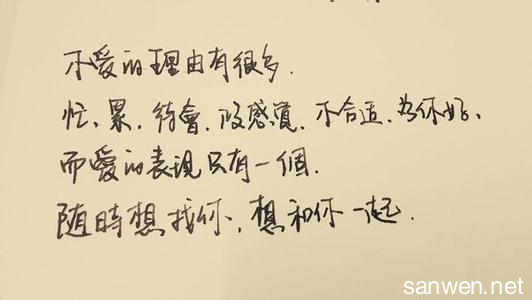 不爱的理由有很多.
忙、累,待會,没感觉,不合适,为你好、
而愛的表现只有一個.
随時想找你,想和你一起.
sanwen.net